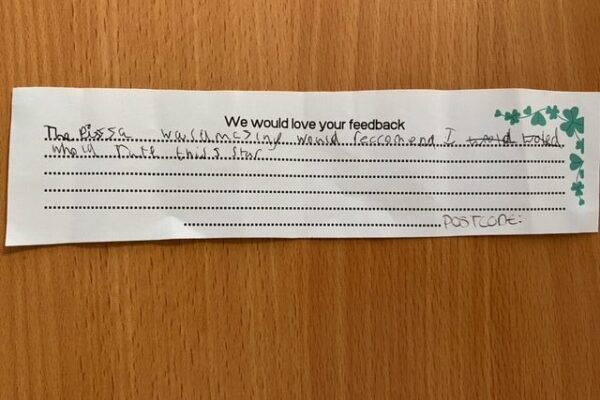 We would love your feedback
The Pissa was amazing would reccomend I would woled
whold rate this 5 star
POSTCODE: